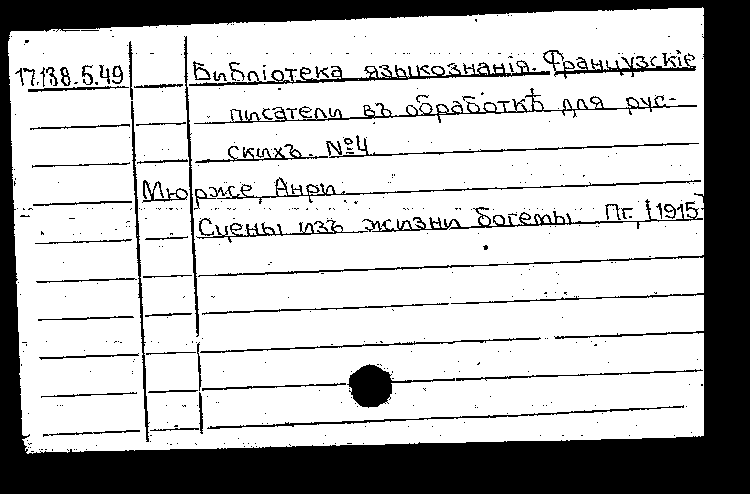 17.138.5.49 Библіотека языкознанія. Французскіе
писатели въ обработкѣ для рус-
скихъ. №4.
Мюрже, Анри.
Сцены изъ жизни богемы. Пг., [1915]